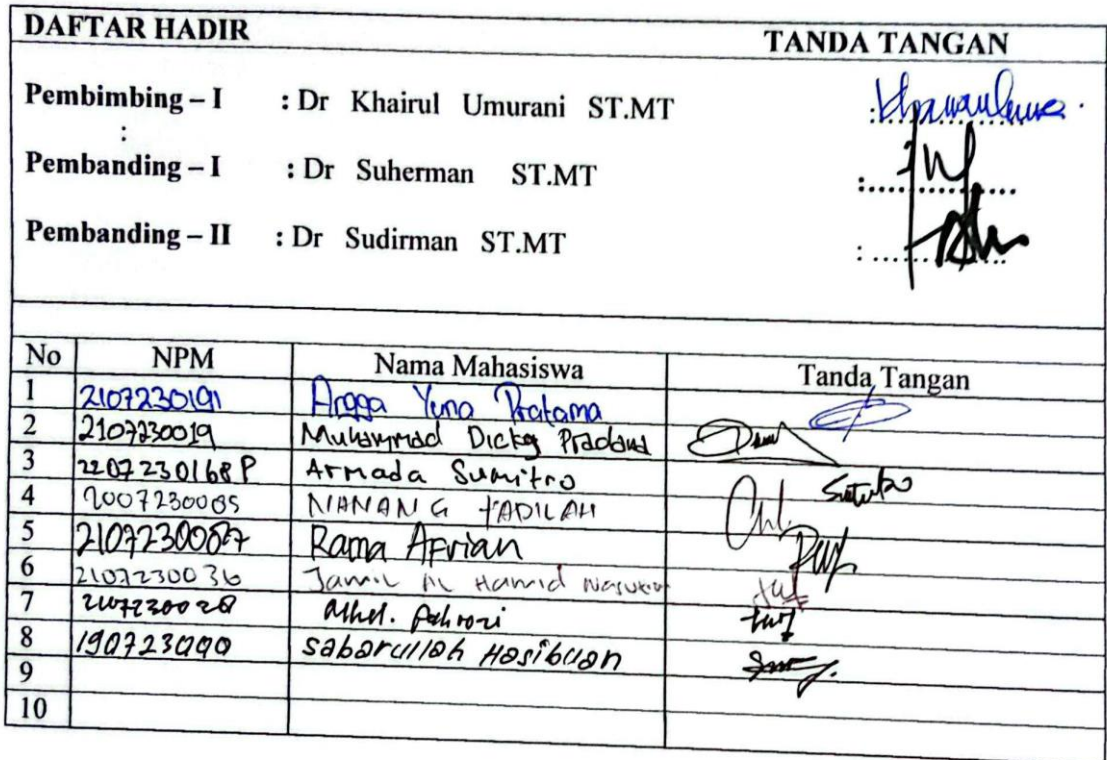 DAFTAR HADIR TANDA TANGAN
Pembimbing – I : Dr Khairul Umurani ST.MT :
:
Pembanding – I : Dr Suherman ST.MT :..............
Pembanding – II : Dr Sudirman ST.MT :..............
No NPM Nama Mahasiswa Tanda Tangan
1 2107230191 Angga Yuna Pratama
2 2107230019 Muhammad Dicky Pradana
3 2207230168P Armada Sumitro
4 2007230085 NANANG FADILAH
5 2107230087 Rama Afrian
6 2107230036 Jamil Hamid Nasution
7 2107230028 Mhd. Pahrozi
8 190723 Sabarullah Hasibuan
9
10